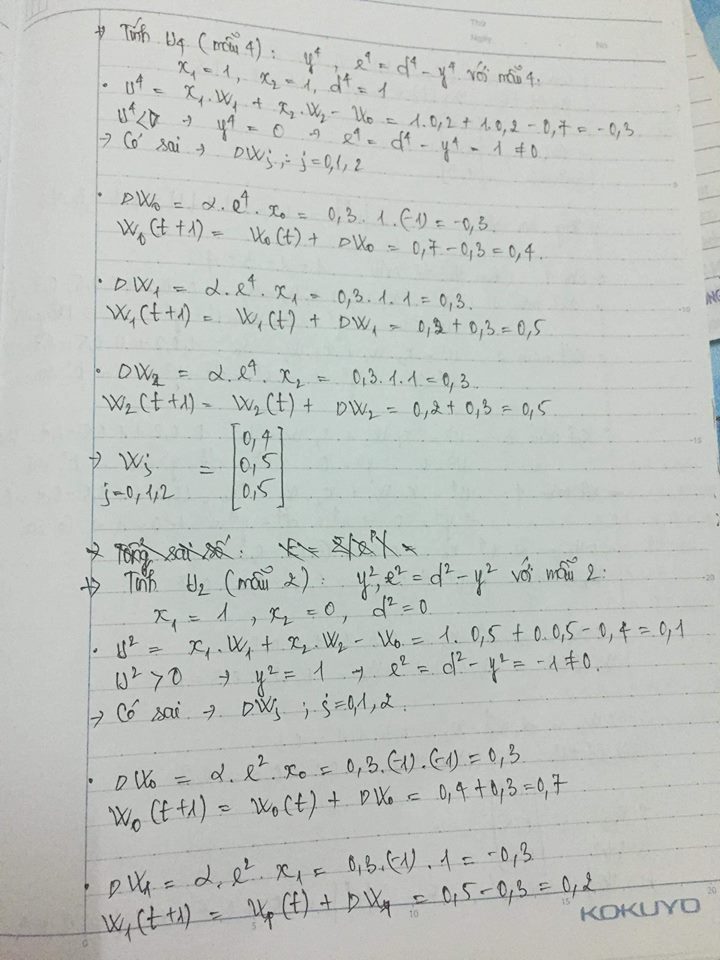 Thứ
Ngày No
+> Tính U4 (mẫu 4): y⁴, e⁴ = d⁴ - y⁴ với mẫu 4:
x₁ = 1, x₂ = 1, d⁴ = 1
• U⁴ = x₁.W₁ + x₂.W₂ - W₀ = 1.0,2 + 1.0,2 - 0,7 = -0,3
U⁴<0 → y⁴ = 0 → e⁴ = d⁴ - y⁴ = 1 ≠ 0.
→ Có sai → DWj ; j=0,1,2
• DW₀ = α.e⁴.x₀ = 0,3.1.(-1) = -0,3.
W₀(t+1) = W₀(t) + DW₀ = 0,7-0,3=0,4.
• DW₁ = α.e⁴.x₁ = 0,3.1.1 = 0,3.
W₁(t+1) = W₁(t) + DW₁ = 0,2+0,3=0,5
• DW₂ = α.e⁴.x₂ = 0,3.1.1=0,3.
W₂(t+1) = W₂(t) + DW₂ = 0,2+0,3=0,5.
0,4
→ Wj = 0,5
j=0,1,2 0,5
→ Tổng sai số: E =
+> Tính U2 (mẫu 2): y², e² = d² - y² với mẫu 2:
x₁ = 1, x₂ = 0, d² = 0
• U² = x₁.W₁ + x₂.W₂ - W₀ = 1.0,5 + 0.0,5 - 0,4 = 0,1
U² > 0 → y² = 1 → e² = d² - y² = -1 ≠ 0.
→ Có sai → DWj ; j=0,1,2.
• DW₀ = α.e².x₀ = 0,3.(-1).(-1) = 0,3
W₀(t+1) = W₀(t) + DW₀ = 0,4+0,3=0,7
• DW₁ = α.e².x₁ = 0,3.(-1).1 = -0,3
W₁(t+1) = W₁(t) + DW₁ = 0,5-0,3 = 0,2
KOKUYO